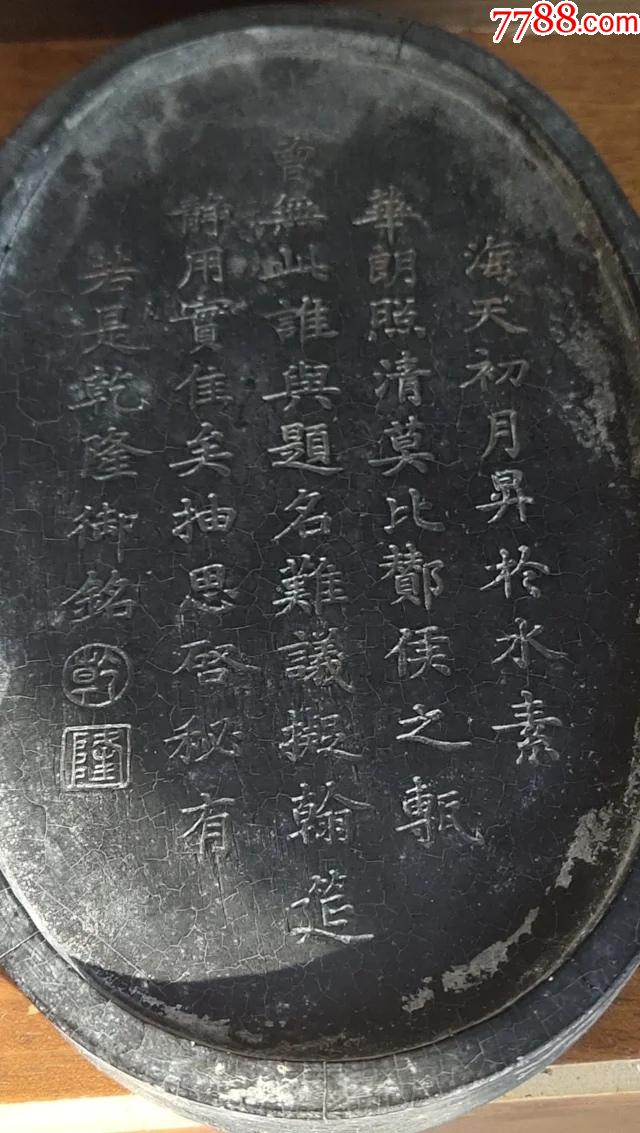 7788.com
海天初月昇於水素
華朗照清莫比酇侯之瓻
曾無此誰與題名難議擬翰筵
靜用實隹矣抽思啓秘有
若是乾隆御銘
乾
隆